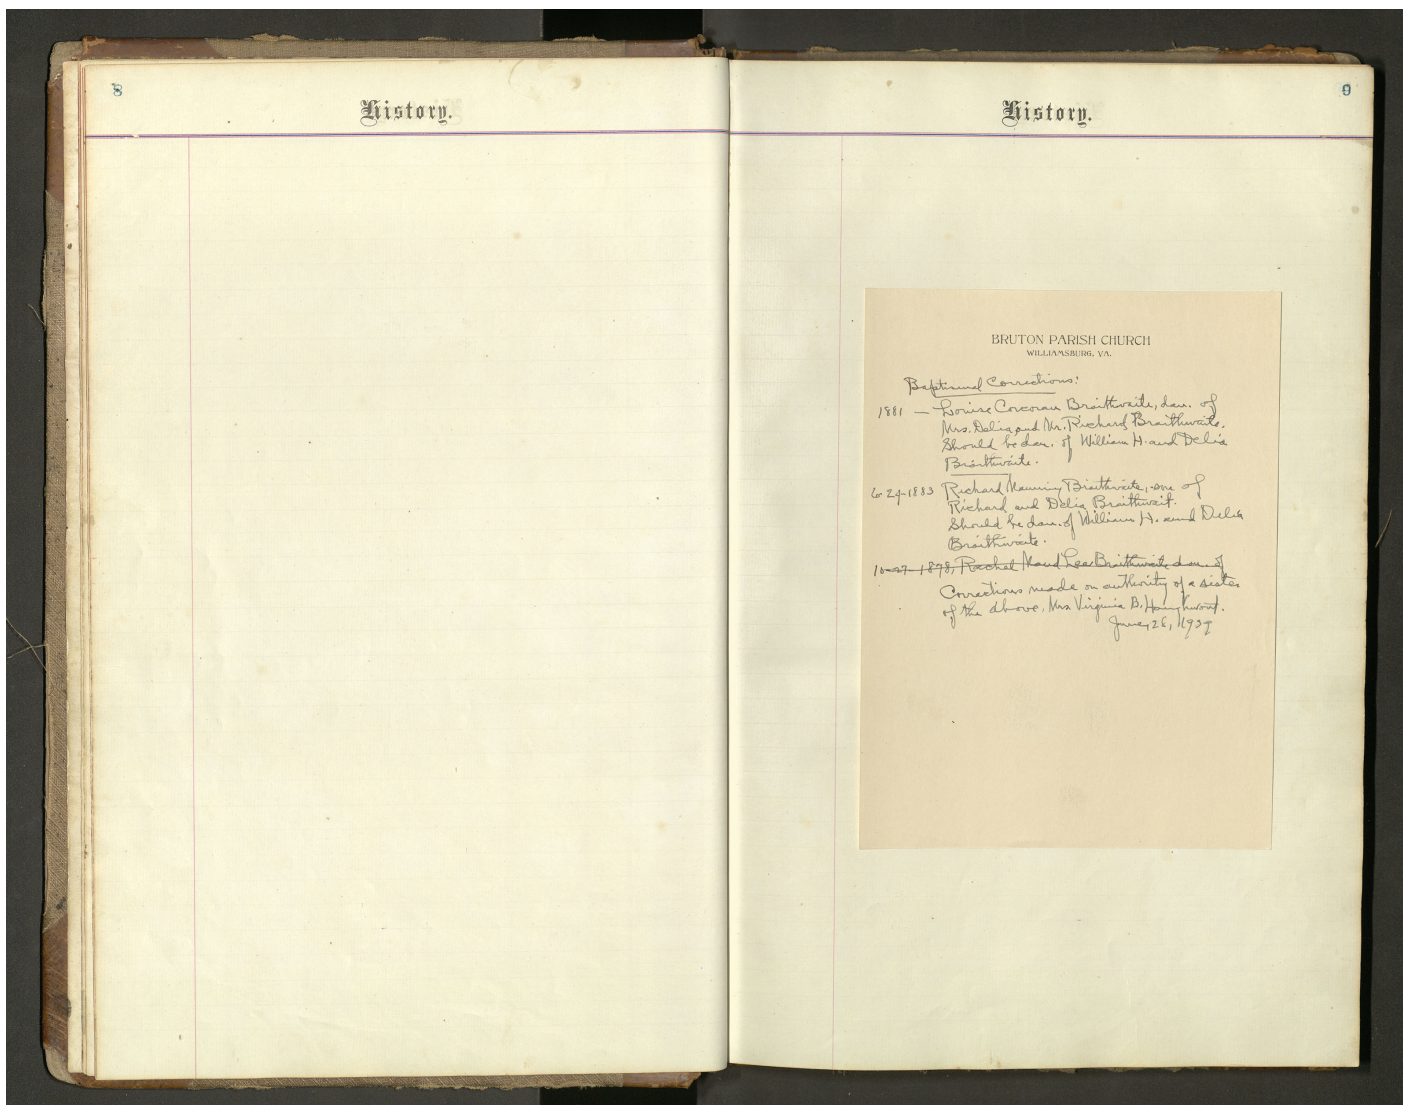 8
History.
9
History.
BRUTON PARISH CHURCH
WILLIAMSBURG, VA.
Baptismal Corrections:
1881 — Louise Corcoran Braithwaite, dau. of
Mrs. Delia and Mr. Richard Braithwaite.
Should be dau. of William H. and Delia
Braithwaite.
6-24-1883 Richard Manning Braithwaite, son of
Richard and Delia Braithwait.
Should be dau. of William H. and Delia
Braithwaite.
10-27-1878, Rachel Maud Lee Braithwaite dau. of
Corrections made on authority of a sister
of the above, Mrs Virginia B. Haughwout.
June, 28, 1939